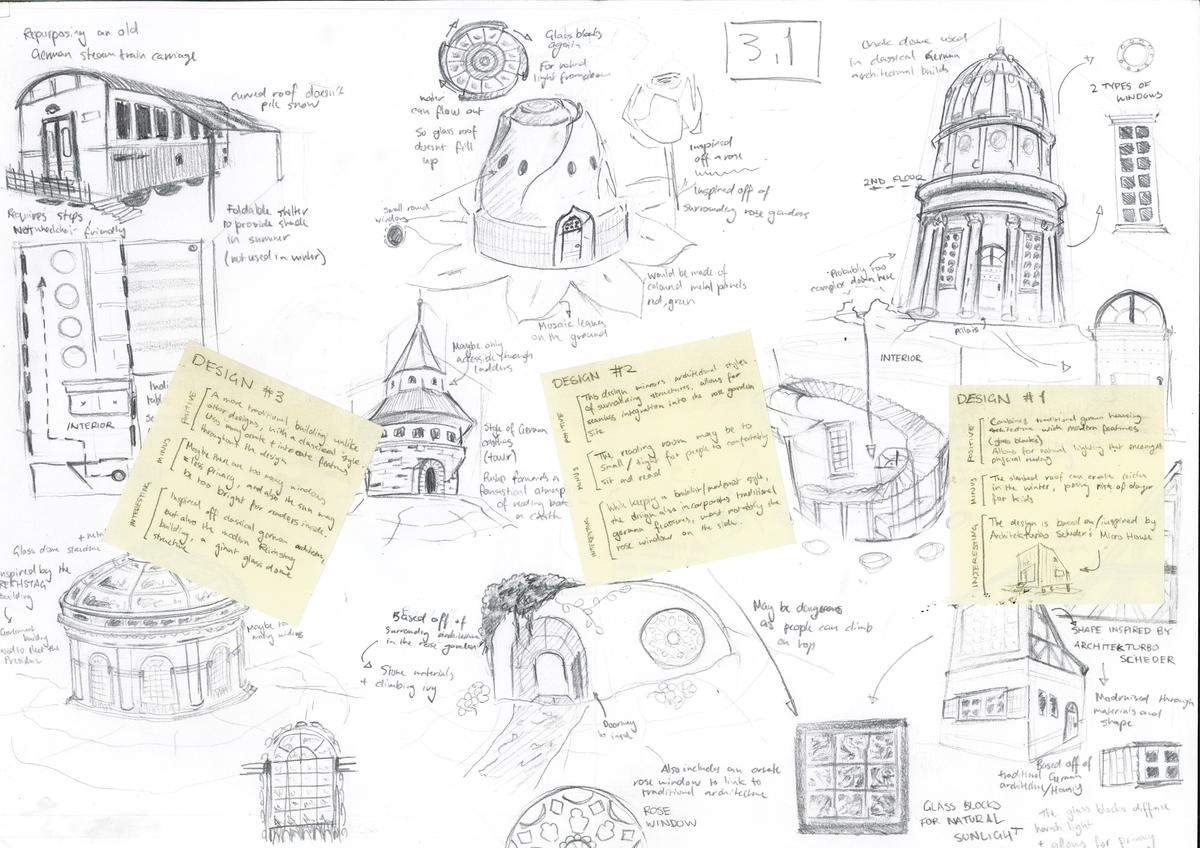 Repurposing an old
German steam train carriage
curved roof doesn't
pile snow
Requires steps,
Not wheelchair friendly
Foldable shelter
to provide shade
in summer
(not used in winter)
INTERIOR
Glass blocks
again
For natural
light from above
water
can flow out
So glass roof
doesnt fill
up
small round
windows
Inspired
off a rose
Inspired off of
surrounding rose gardens
Would be made of
coloured metal panels
red, green
Mosaic leaves
on the ground
3,1
dome used
In classical German
architectural builds
2 TYPES OF
WINDOWS
2ND FLOOR
Probably too
complex down here
INTERIOR
Maybe only
accessible through
ladders
Style of German
(tower)
DESIGN #3
POSITIVE
A more traditional building unlike
other designs, with a classical style.
Uses more ornate + intricate features
throughout the design
MINUS
Maybe there are too many windows
+ less privacy, and also the sun may
be too bright for readers inside.
INTERESTING
Inspired off classical german architecture
but also the modern Reichstag
building, a giant glass dome
structure
DESIGN #2
POSITIVE
This design mirrors architectural styles
of surrounding structures, allows for
seamless integration into the rose garden
site
MINUS
The reading room may be to
small / tight for people to comfortably
sit and read
INTERESTING
While keeping a modernist style,
the design also incorporates traditional
german features, most notably the
rose window on the side.
DESIGN #1
POSITIVE
Combines traditional german housing
architecture with modern features
(glass blocks)
Allows for natural lighting that encourages
physical reading
MINUS
The slanted roof can create
in the winter, posing risk of danger
for kids
INTERESTING
The design is based on/inspired by
Architekturbo Scheder's Micro House
Glass dome structure
Inspired by the
REICHSTAG
Building
Government
building
used to elect the
President
Maybe too
many windows
Based off of
surrounding architecture
in the rose garden
Stone materials
+ climbing ivy
Doorway
to input
May be dangerous
as people can climb
on top
Also includes an ornate
rose window to link to
traditional architecture
ROSE
WINDOW
GLASS BLOCKS
FOR NATURAL
SUNLIGHT
SHAPE INSPIRED BY
ARCHITEKTURBO
SCHEDER
Modernised through
materials and
shape
Based off of
traditional German
architecture/Housing
The glass blocks diffuse
harsh light
+ allows for privacy